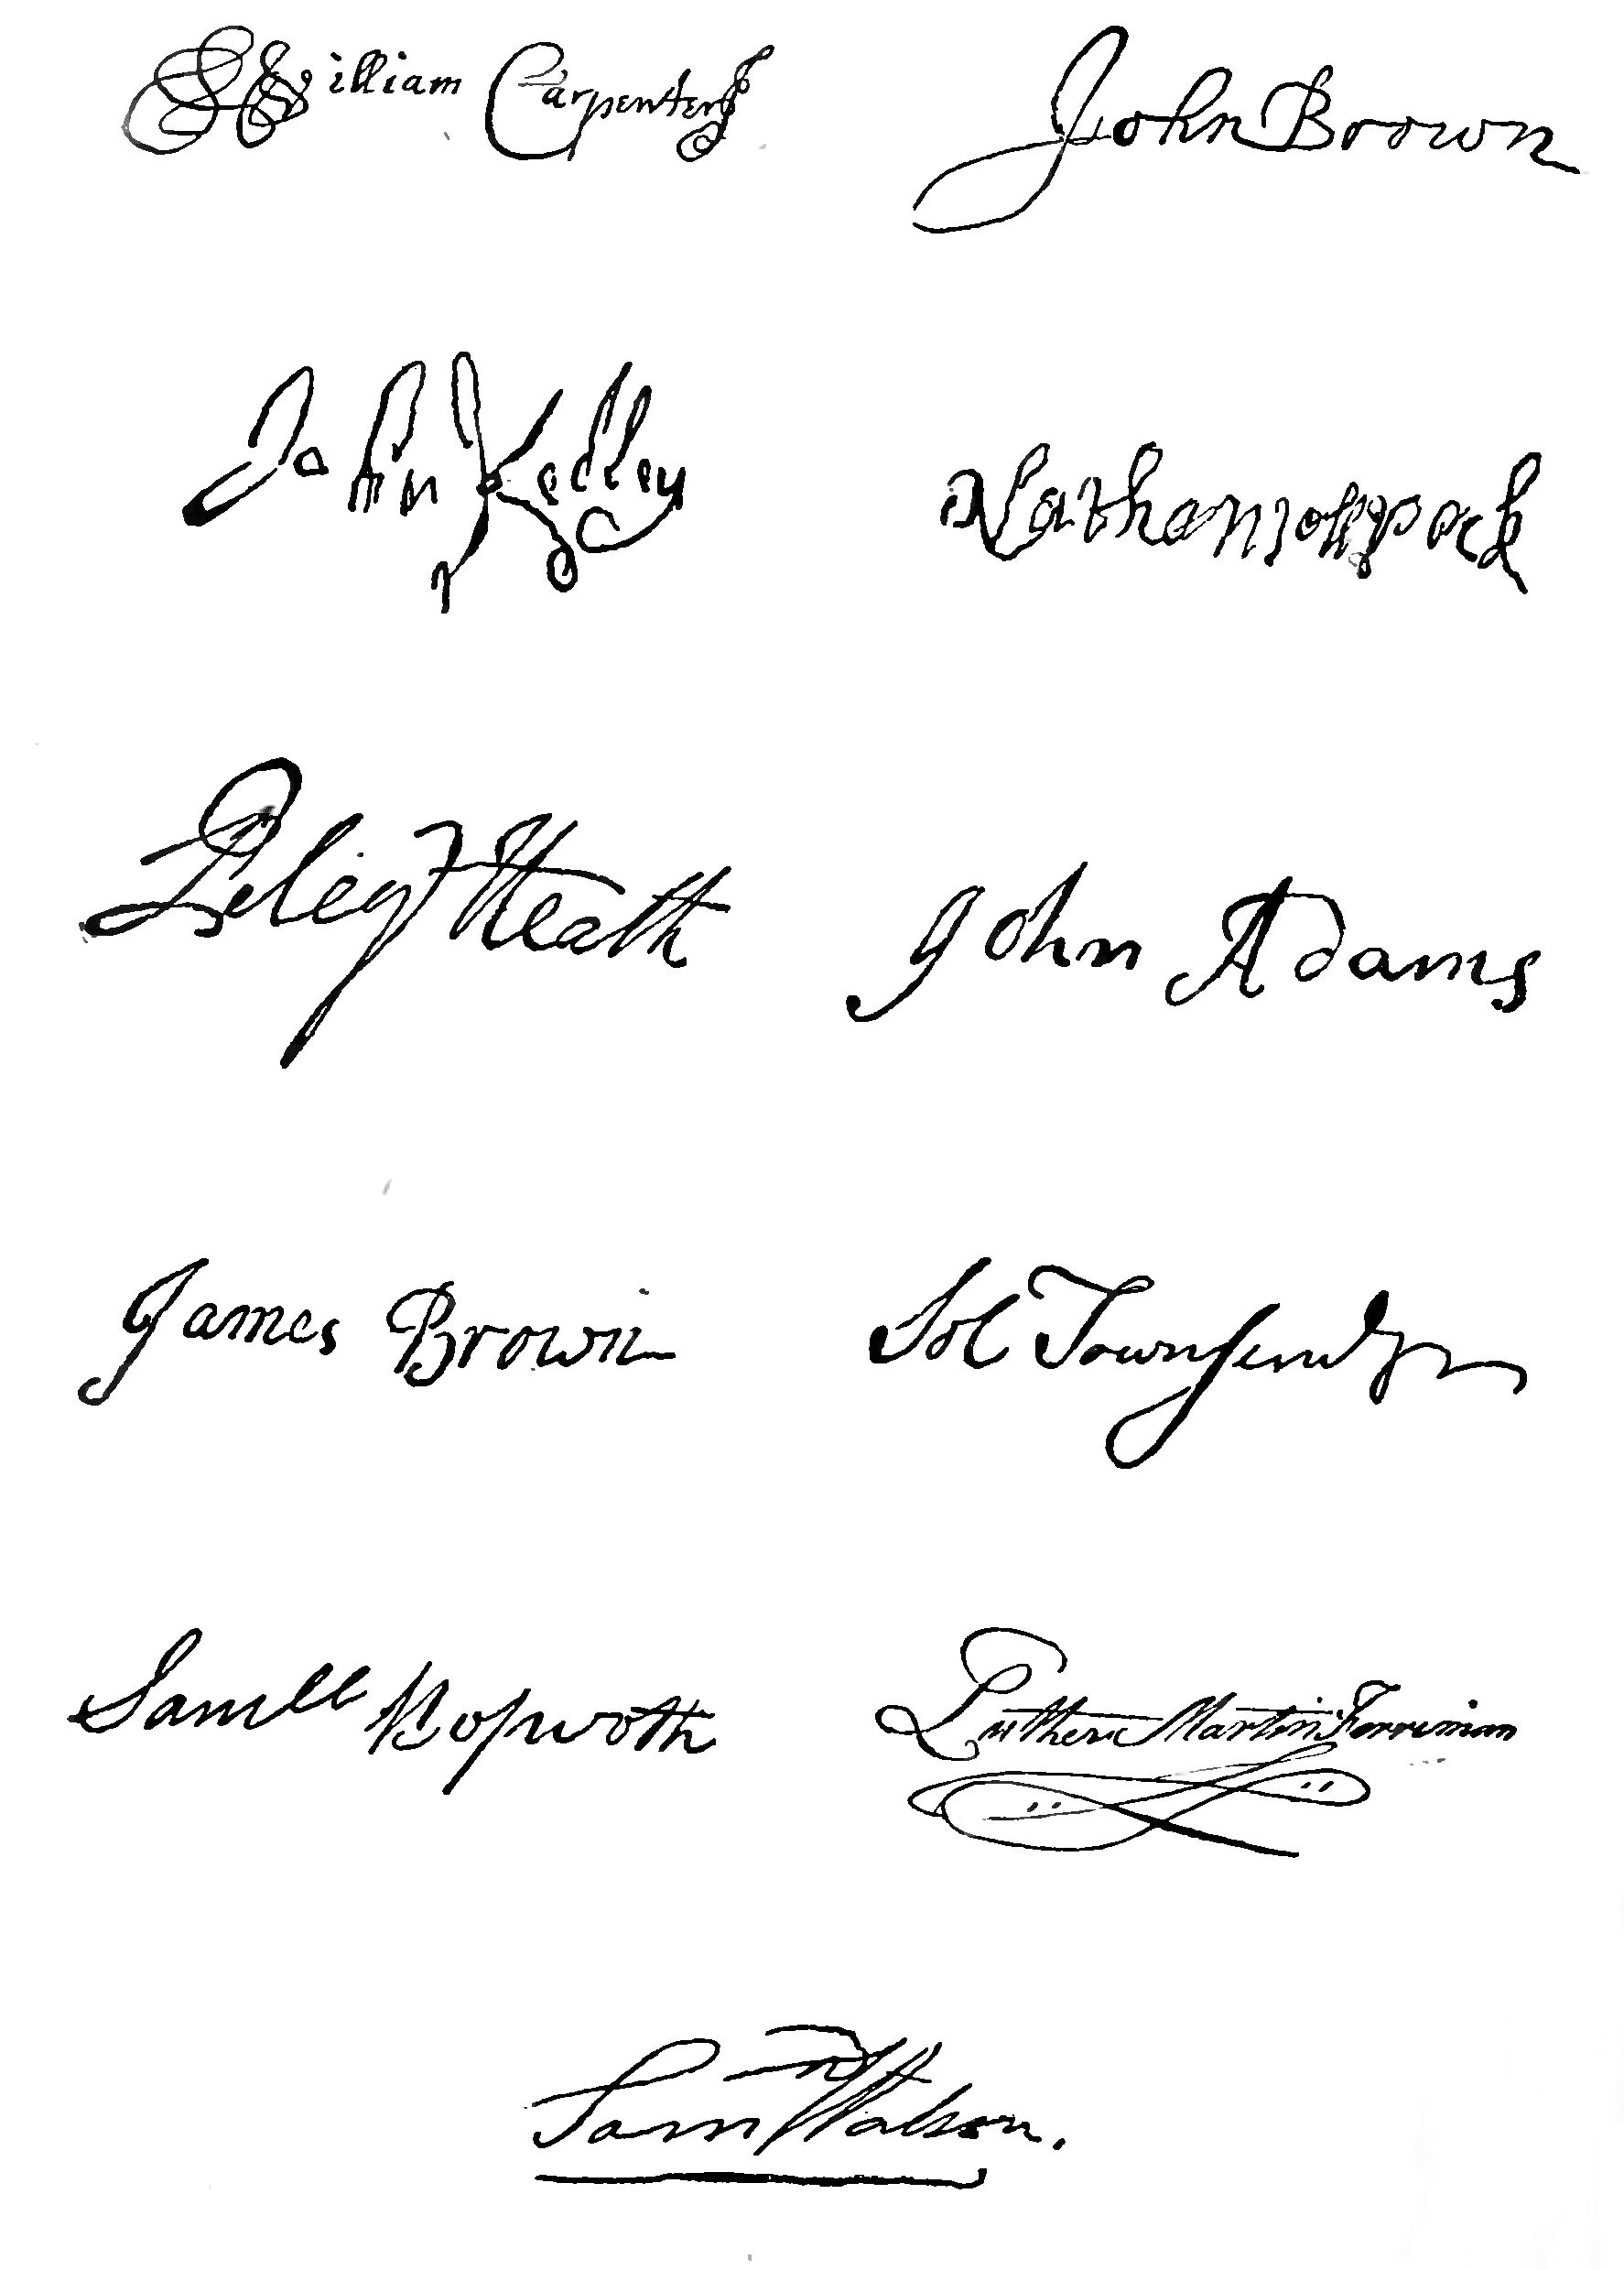 William Carpenter John Brown
John Kelley Nathan
Peleg Heath John Adams
James Brown Sol Townsend
Samll Bosworth Luther Martin
Sam Watson.